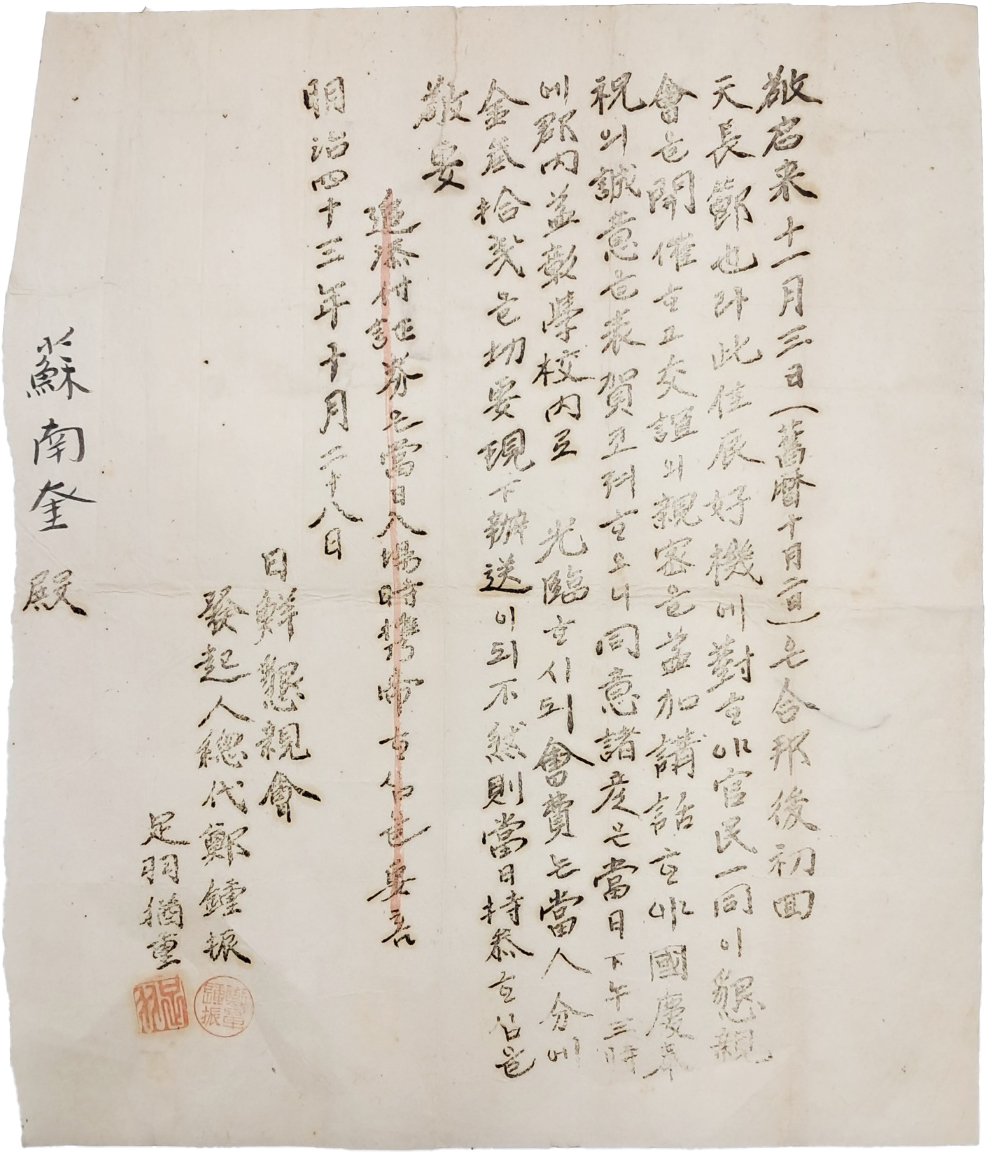 敬啓来十一月三日(舊曆十月二日)은合邦後初回
天長節也라此佳辰好機에對하야官民一同이懇親
會을開催하고交誼의親密을益加講話하야國慶奉
祝의誠意을表賀코져하오니同意諸彦은當日下午三時
에郡內益彰學校內로 光臨하시되會費는當人分에
金參拾戔을切要現下辦送이되不然則當日持參하심을
敬要
追添付証券는當日入場時携帶하심을要홈
明治四十三年十月二十八日
日鮮懇親會
發起人總代鄭鍾振
足羽猶重
蘇南奎殿